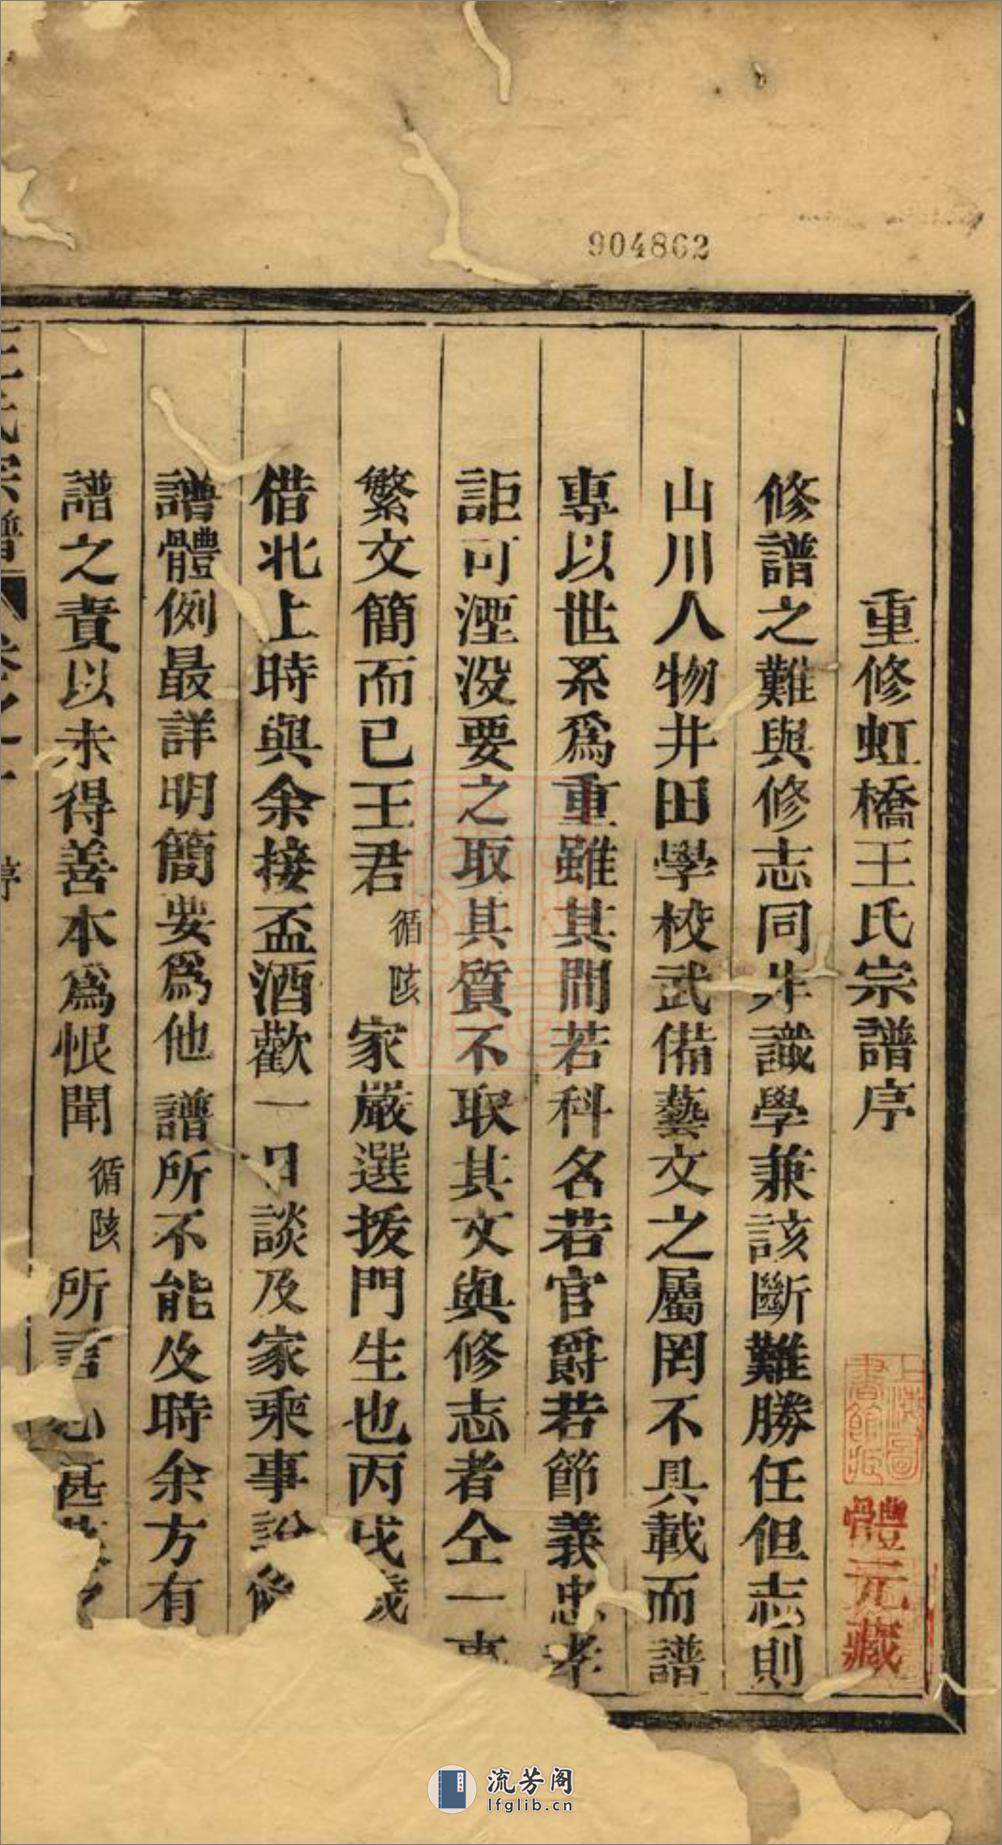 904862
重修虹橋王氏宗譜序
修譜之難與修志同非識學兼該斷難勝任但志則
山川人物井田學校武備藝文之屬罔不具載而譜
專以世系爲重雖其間若科名若官爵若節義忠孝
詎可湮没要之取其質不取其文與修志者仝一事
繁文簡而已王君循陔家嚴選拔門生也丙戌歲
借北上時與余接盃酒歡一日談及家乘事說修
譜體例最詳明簡要爲他譜所不能及時余方有
譜之責以未得善本爲恨聞循陔所言心甚
王氏宗譜 卷之一 序
上海圖書館藏
體元藏
流芳阁
lfglib.cn